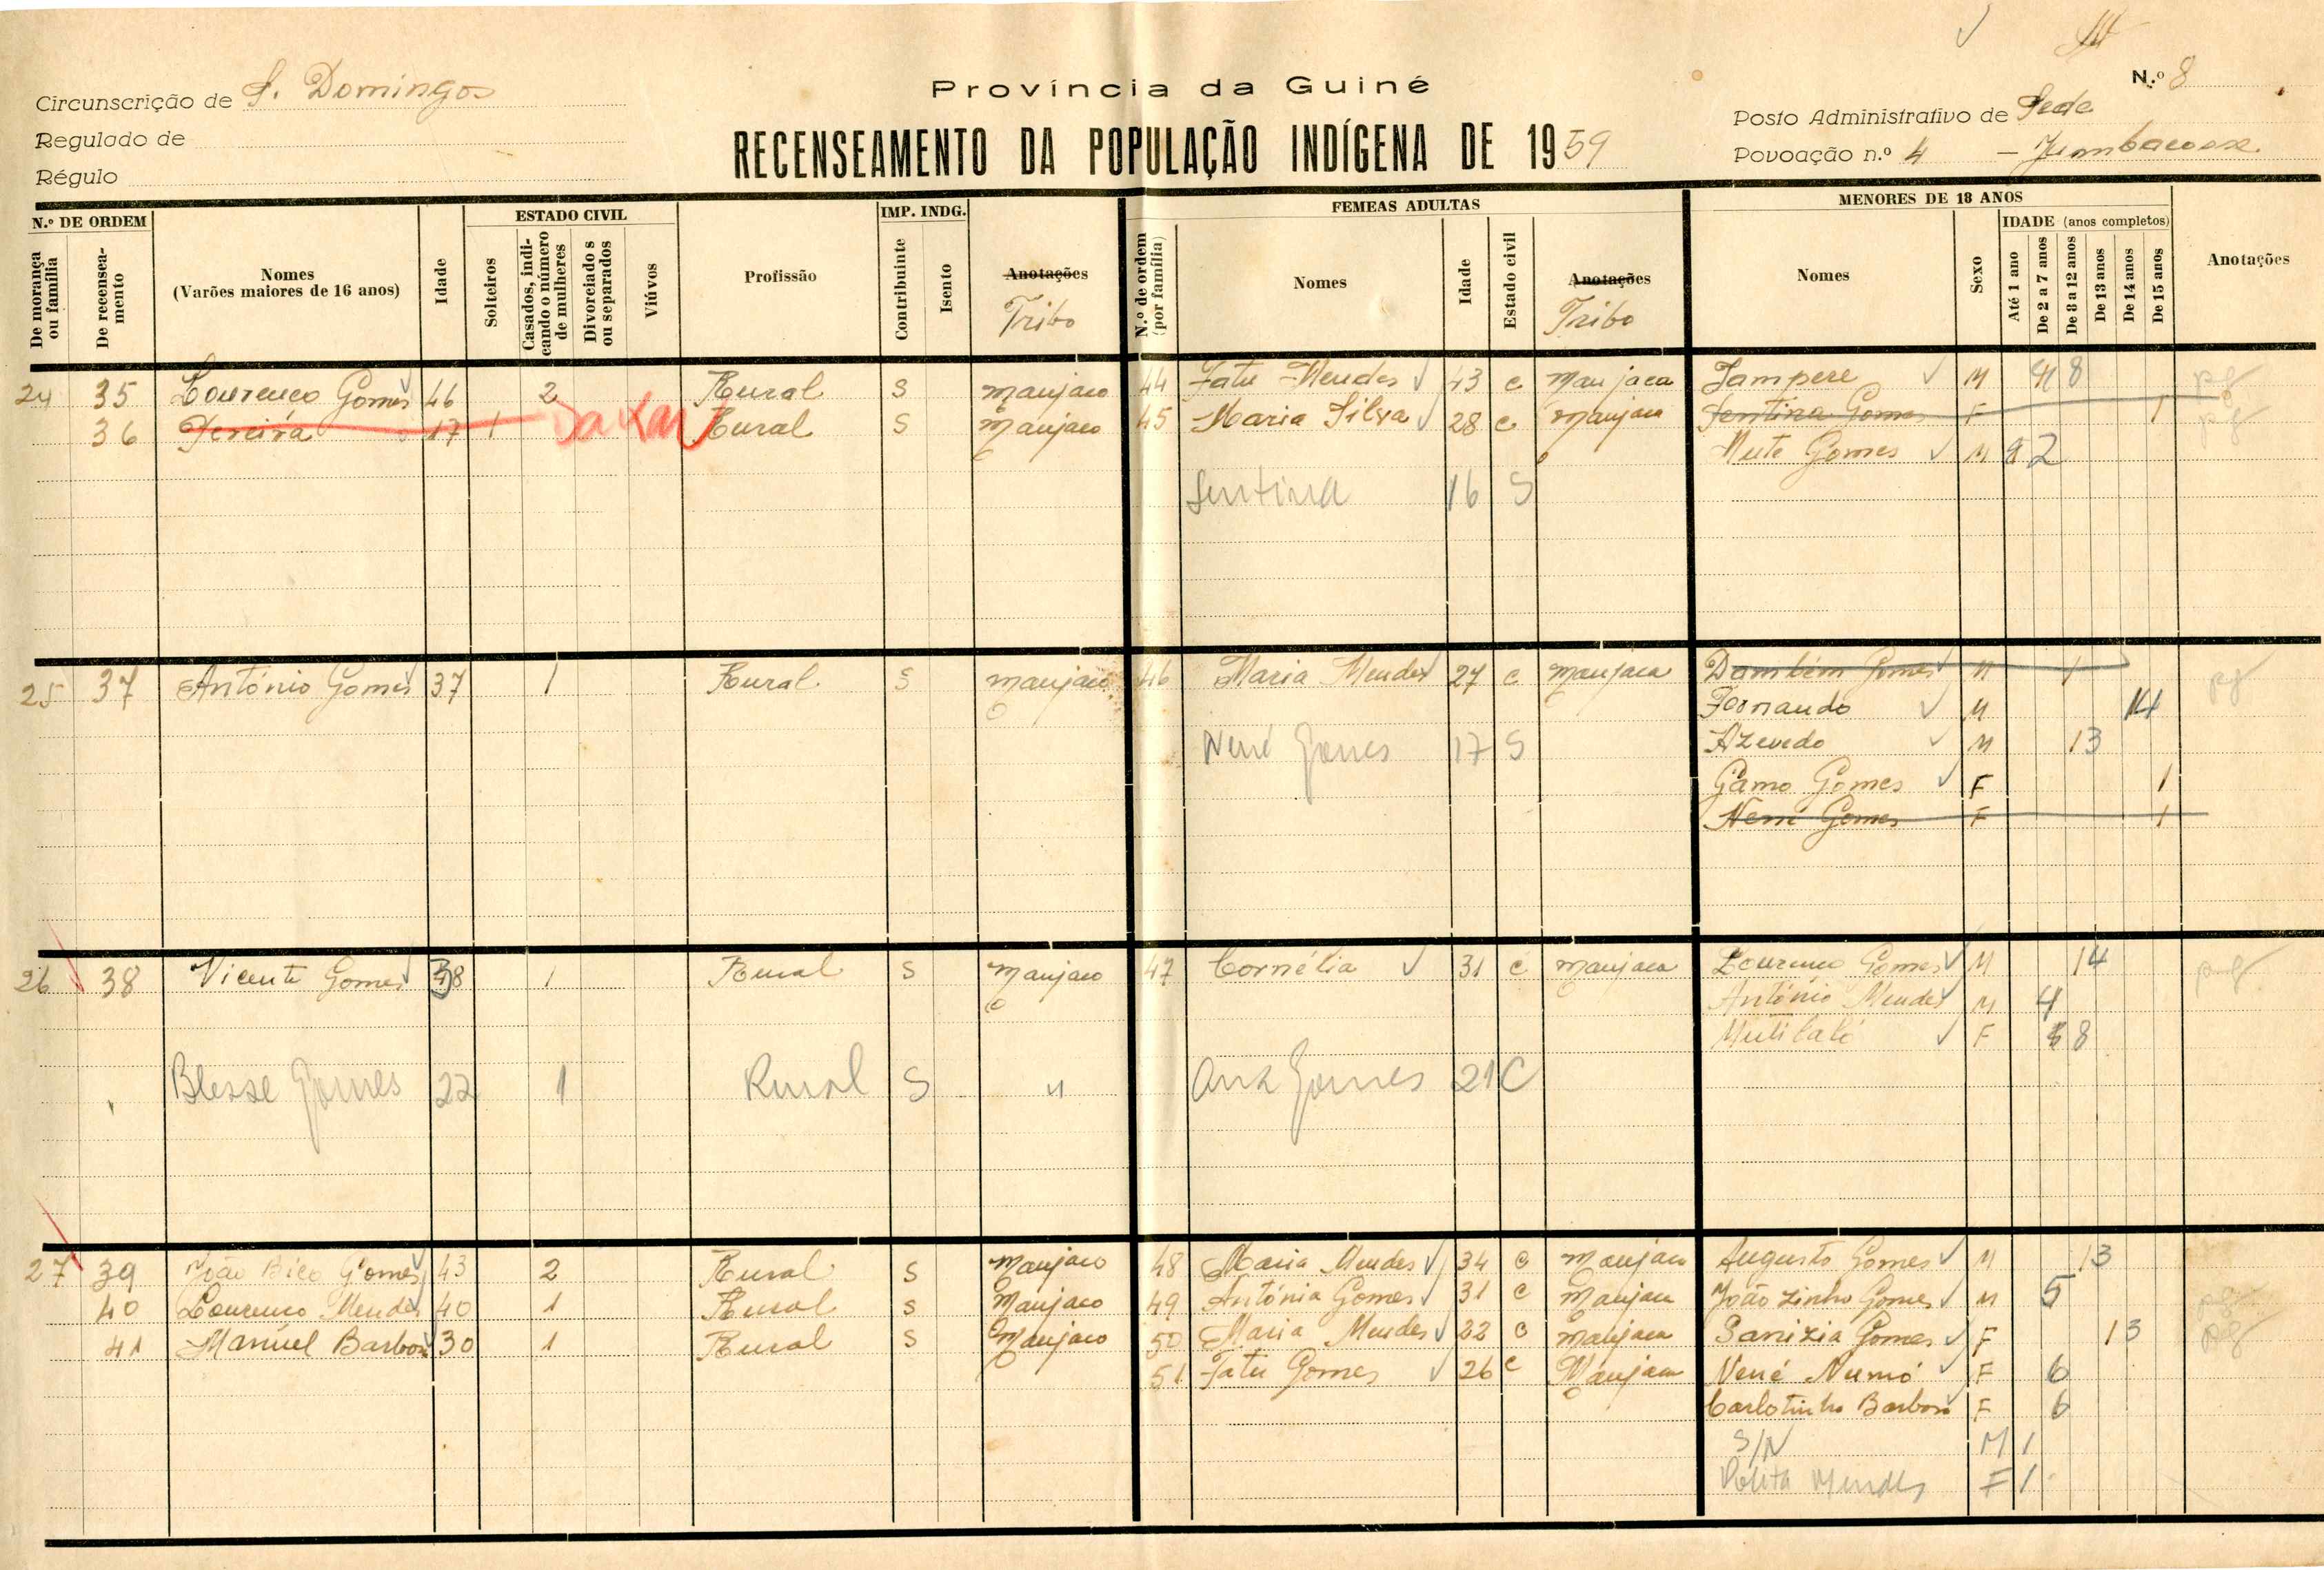 Província da Guiné
N.º 8
Circunscrição de S. Domingos
Posto Administrativo de Sede
Regulado de
RECENSEAMENTO DA POPULAÇÃO INDÍGENA DE 1959
Povoação n.º 4 -
Régulo
N.º DE ORDEM
De morança ou família
De recenseamento
Nomes
(Varões maiores de 16 anos)
Idade
ESTADO CIVIL
Solteiros
Casados, indicando o número de mulheres
Divorciados ou separados
Viúvos
Profissão
IMP. INDG.
Contribuinte
Isento
Anotações
Tribo
FEMEAS ADULTAS
N.º de ordem (por família)
Nomes
Idade
Estado civil
Anotações
Tribo
MENORES DE 18 ANOS
Nomes
Sexo
IDADE (anos completos)
Até 1 ano
De 2 a 7 anos
De 8 a 12 anos
De 13 anos
De 14 anos
De 15 anos
Anotações
24 35 Lourenço Gomes 46 2 Rural S manjaco 44 Fatu Mendes 43 c manjaca Jampere M 8 pg
36 Pereira 17 1 Dakar Rural S manjaco 45 Maria Silva 28 c manjaca Sentina Gomes F 1 pg
Mute Gomes M 2
Sentina 16 S
25 37 António Gomes 37 1 Rural S manjaco 46 Maria Mendes 27 c manjaca Dambém Gomes M 1 pg
Fernando M 14
Nené Gomes 17 S Azevedo M 13
Gamo Gomes F 1
Nené Gomes F 1
26 38 Vicente Gomes 38 1 Rural S manjaco 47 Cornélia 31 c manjaca Lourenço Gomes M 14 pg
António Mendes M 4
F 8
Blesse Gomes 22 1 Rural S " Ana Gomes 21 C
27 39 João Bico Gomes 43 2 Rural S manjaco 48 Maria Mendes 34 c manjaca Augusto Gomes M 13
40 Lourenço Mendes 40 1 Rural S manjaco 49 Antónia Gomes 31 c manjaca João zinho Gomes M 5 pg
41 Manuel Barbosa 30 1 Rural S manjaco 50 Maria Mendes 22 c manjaca Gomes F 13 pg
51 Fatu Gomes 26 c Manjaca Nené Numó F 6
Carlotinha Barbosa F 6
S/N M 1
Mendes F 1